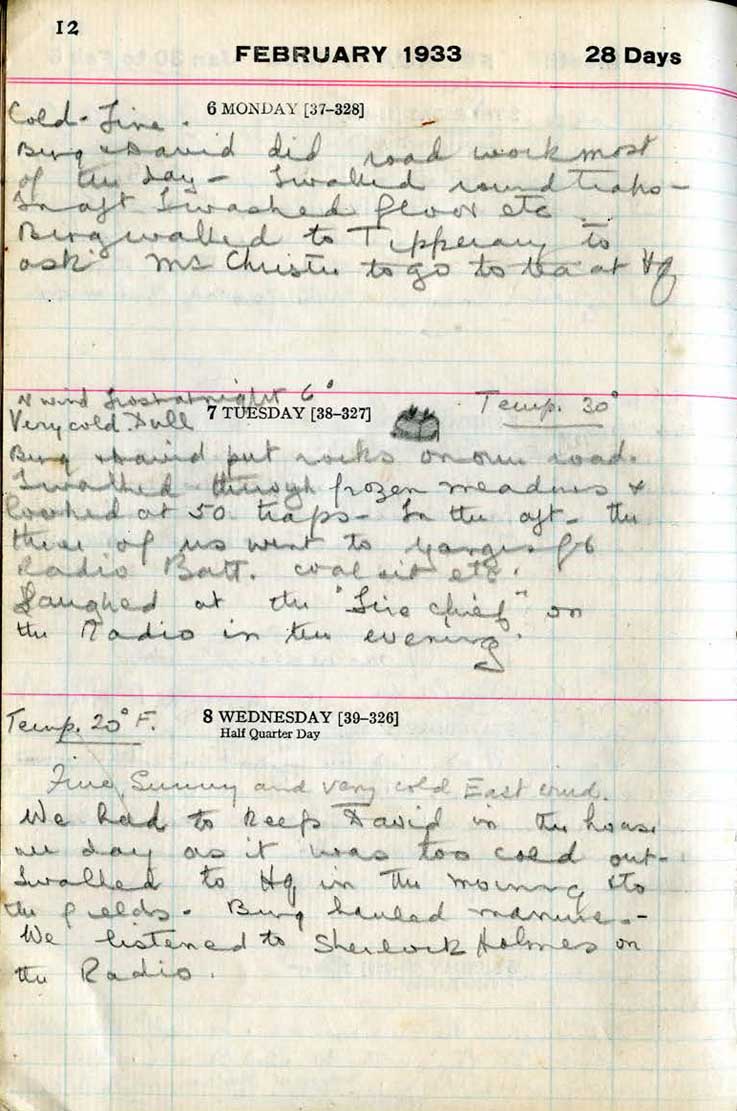 12
FEBRUARY 1933 28 Days
6 MONDAY [37–328]
Cold - Fine.
Bing & David did road work most
of the day - I walked round traps -
In aft I washed floor etc
Bing walked to Tipperary to
ask Mrs Christie to go to tea at Hq
N wind Frost at night 6°
7 TUESDAY [38–327]
Very cold. Dull
Temp. 30°
Bing & David put rocks on our road.
I walked through frozen meadows &
looked at 50 traps - In the aft - the
three of us went to Ganges for
Radio Batt. coal oil etc.
Laughed at the "Fire chief" on
the Radio in the evening.
8 WEDNESDAY [39–326]
Half Quarter Day
Temp. 20° F.
Fine, Sunny and very cold East wind.
We had to keep David in the house
all day as it was too cold out -
I walked to Hq in the morning & to
the fields. Bing hauled manure. -
We listened to Sherlock Holmes on
the Radio.